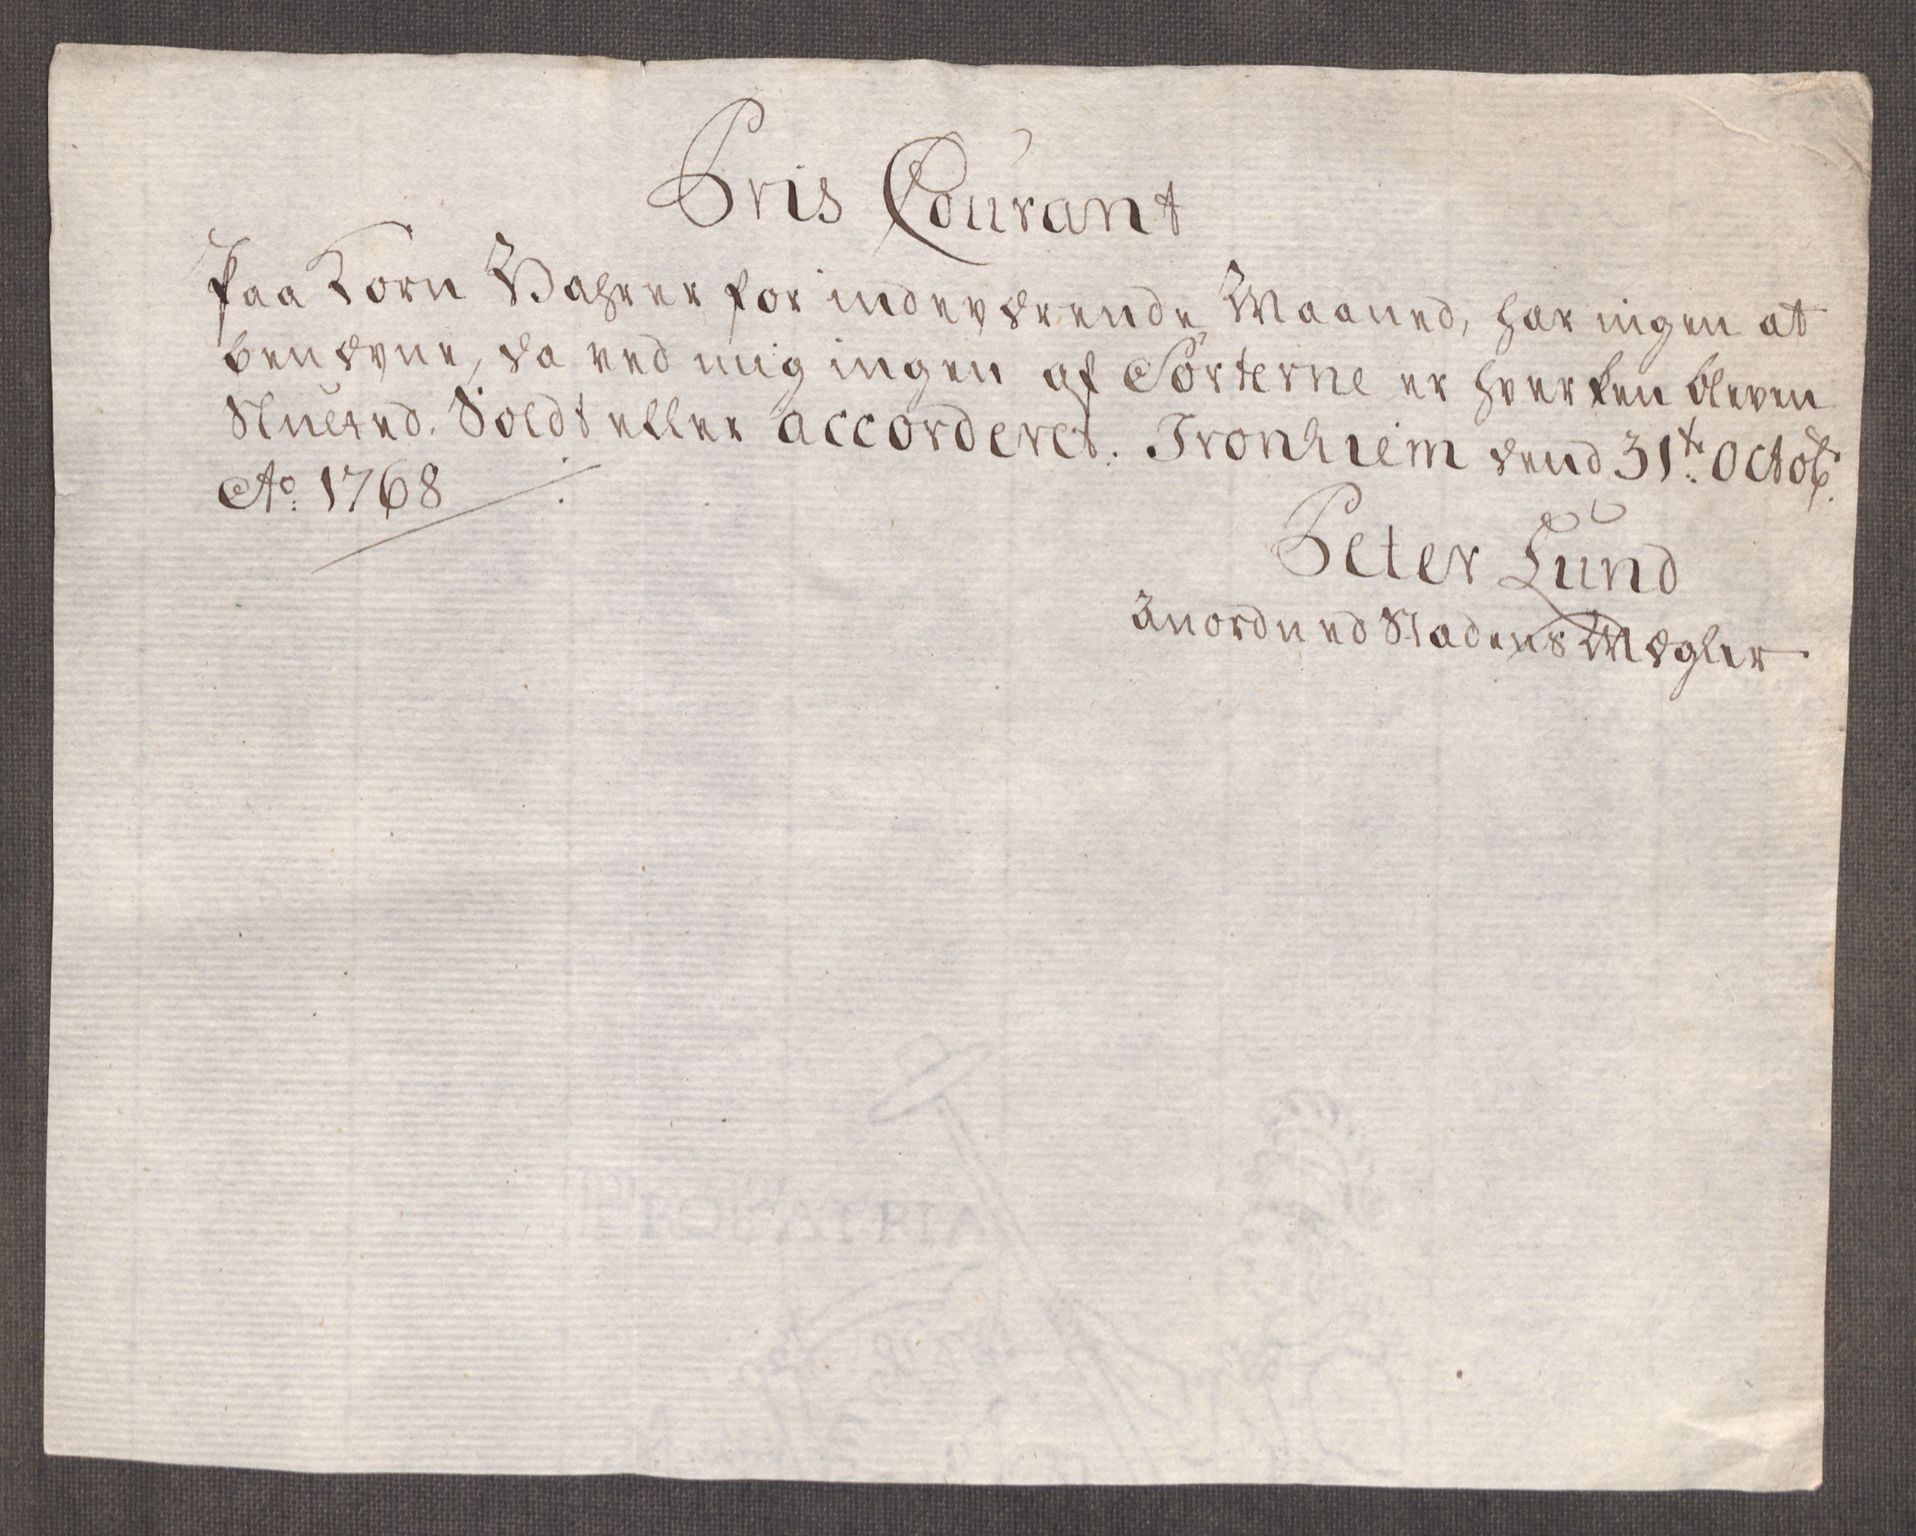 Pris Courant
Paa Korn Vahrer for indeværende Maaned, har ingen at
benævne, da ved mig ingen af Sorterne er hverken bleven
Slutted. Soldt eller accorderet. Tronhiem dend 31te Octobr.
Ao. 1768
Peter Lund
Anordned Stadens Mægler